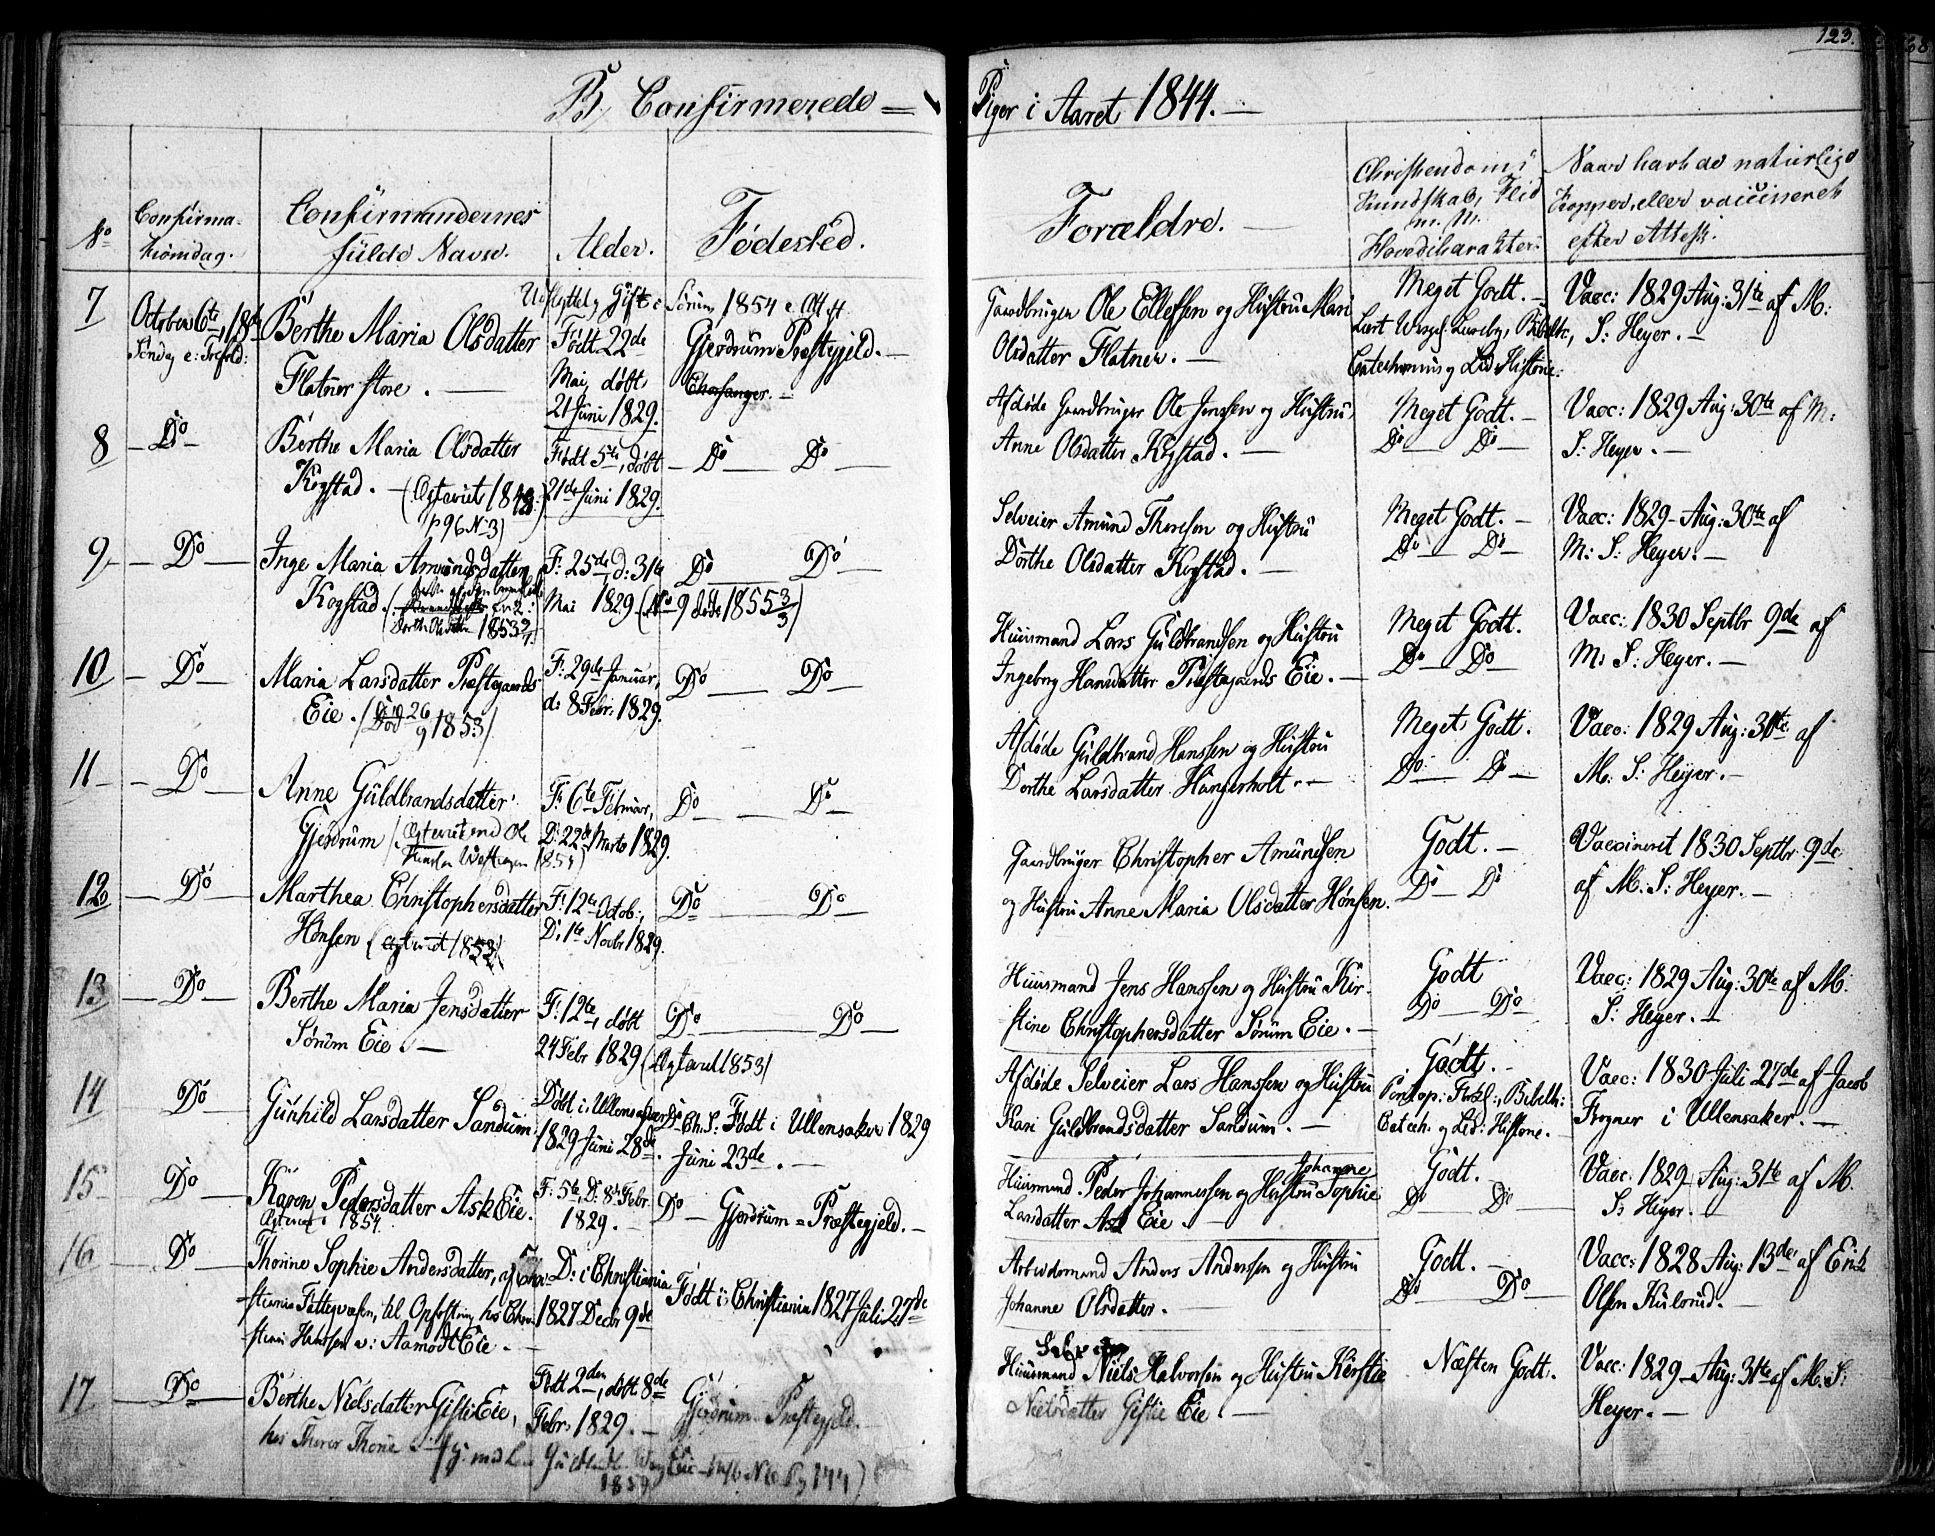 123.
B, Confirmerede = Piger i Aaret 1844. —
No
Confirma-
tionsdag.
Confirmandernes
fulde Navne.
Alder.
Fødested.
Forældre. —
Christendoms
Kundskab, Flid
m. m.
Hovedcharakter.
Naar havt de naturlige
Kopper, eller vaccineret
efter Attest.
7
October 6te, 18de
Søndag e: Trefold:
Berthe Maria Olsdatter
Flatner store. —
Udflyttet, Gift i Sørum 1854
Født 22de
Mai, døbt
21 Juni 1829.
Gjerdrum Præstegjeld. —
Gaardbruger Ole Ellefsen og Hustru Mari
Olsdatter Flatner. —
Meget Godt. —
Catechismus og Historie:
Vacc: 1829 Aug: 31te af M:
S: Heyer. —
8
— Do —
Berthe Maria Olsdatter
Kogstad. —
p 96 N: 3)
Født 5te, døbt
21de Juni 1829.
— Do — Do —
Afdøde Gaardbruger Ole Jenssen og Hustru
Anne Olsdatter Kogstad. —
Meget Godt. —
Do — Do —
Vacc: 1829 Aug: 30te af M:
S: Heyer. —
9,
— Do —
Inge Maria Amundsdatter
Kogstad.
Dorthe Olsdatter 1853
F: 25de, d: 31te
Mai 1829 (No 9 døde 1855 3/3)
Do — Do —
Selveier Amund Thoresen og Hustru
Dorthe Olsdatter Kogstad. —
Meget Godt. —
Do — Do —
Vacc: 1829 - Aug: 30te af
M: S: Heyer. —
10
— Do —
Maria Larsdatter Præstegaards
Eie. (Død 26/9 1853)
F: 29de Januar,
d: 8 Febr: 1829.
Do — Do —
Huusmand Lars Guldbrandsen og Hustru
Ingeborg Hansdatter Præstegaards Eie. —
Meget Godt.
Do — Do —
Vacc: 1830 Septbr 9de af
M: S: Heyer. —
11
— Do —
Anne Guldbrandsdatter
Gjerdrum (Ægteviet med Ole
F: 6te Februar,
D: 22de Marts 1829.
Do — Do —
Afdøde Guldbrand Hanssen og Hustru
Dorthe Larsdatter Hangerholt. —
Meget Godt.
Do — Do —
Vacc: 1829 Aug: 30te af
M: S: Heyer. —
12
— Do —
Marthea Christophersdatter
Hønsen (Ægteviet 1853)
F: 12te Octob:,
D: 1te Novbr 1829.
Do — Do —
Gaardbruger Christopher Amundsen
og Hustru Anne Maria Olsdatter Hønsen.
Godt. —
Do — Do
Vaccineret 1830 Septbr 9de
af M. S: Heyer. —
13
— Do —
Berthe Maria Jensdatter
Sørum Eie. —
F: 12te, døbt
24 Febr 1829 (Ægteviet 1853)
Do — Do —
Huusmand Jens Hanssen og Hustru Kir-
stine Christophersdatter Sørum Eie. —
Godt
Do Do
Vacc: 1829 Aug: 30te af M:
S: Heyer. —
14
— Do —
Gunhild Larsdatter Sandum.
Døbt i Ullensager
1829 Juni 28de.
Født i Ullensaker 1829
Juni 23de. —
Afdøde Selveier Lars Hanssen og Hustru
Kari Guldbrandsdatter Sandum. —
Godt. —
Pontop: Forkl:, Bibelh:
Catech. og Historie. —
Vacc: 1830 Juli 27de af Jacob
Frogner i Ullensaker. —
15
— Do —
Karen Pedersdatter Ask Eie.
Ægteviet i 1854
F: 5te, D: 8de Febr
1829. —
Do — Gjerdrum = Præstegjeld. —
Johanne
Huusmand Peder Johannessen og Hustru Sophie
Larsdatter Ask Eie. —
Godt.
Do Do —
Vacc: 1829 Aug: 31te af M.
S: Heyer. —
16
— Do —
Thorine Sophie Andersdatter, af Chri-
stiania Fattigvæsen, til Opfostring hos Chri-
stian Hanssen Aamodt Eie. —
D: i Christiania
1827 Decbr 9de
Født i Christiania 1827 Juli 27de
Arbeidsmand Anders Anderssen og Hustru
Johanne Olsdatter.
Godt. —
Do Do —
Vacc: 1828 Aug: 13de af Erik
Olsen Kulsrud. —
17
— Do —
Berthe Nielsdatter Gistie Eie,
hos Thorer
Født 2den, døbt 8de
Febr: 1829. —
Gjerdrum Præstegjeld.
1859
Huusmand Niels Halvorsen og Hustru Kirstie
Nielsdatter Gistie Eie. —
Næsten Godt.
Vacc: 1829 — Aug: 31te af M. S:
Heyer. —